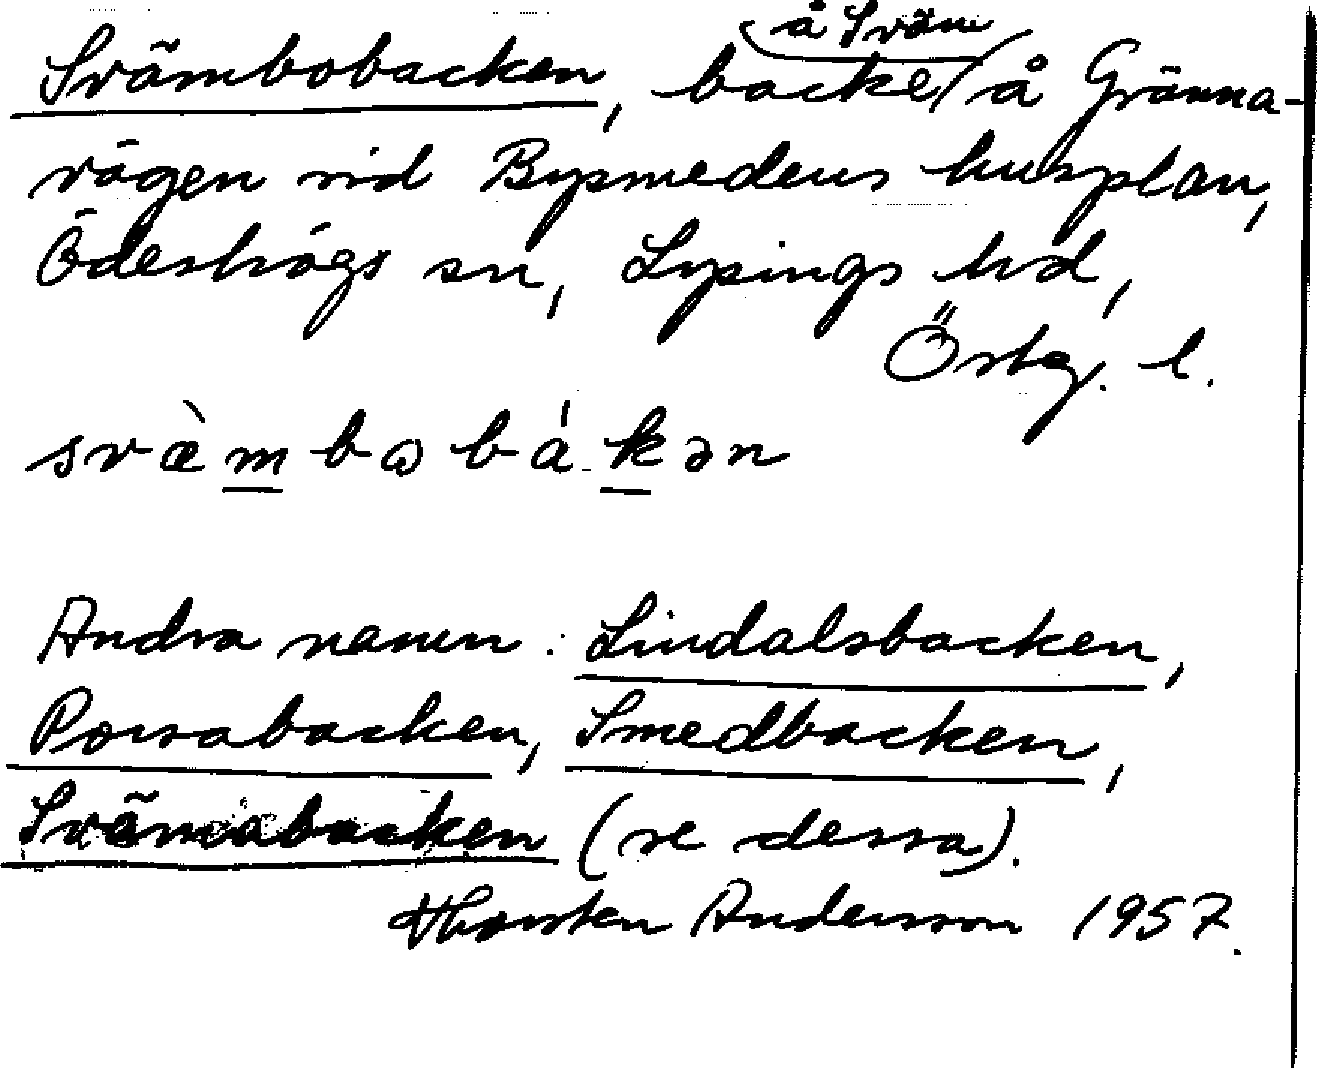 å Sväm
Svämbobacken, backe å Gränna-
vägen vid Bysmedens husplan,
Ödeshögs sn, Lysings hd,
Östg. l.
svæ̀mbωbákən
Andra namn: Lindalsbacken,
Porsabacken, Smedbacken,
Svämabacken (se dessa).
Thorsten Andersson 1957.